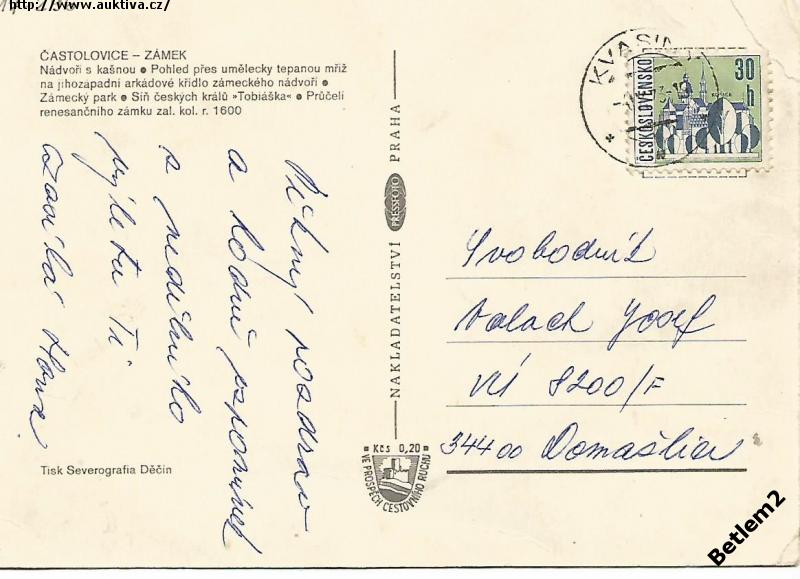 http://www.auktiva.cz/
ČASTOLOVICE – ZÁMEK
Nádvoří s kašnou ● Pohled přes umělecky tepanou mříž
na jihozápadní arkádové křídlo zámeckého nádvoří ●
Zámecký park ● Síň českých králů »Tobiáška« ● Průčelí
renesančního zámku zal. kol. r. 1600
Pěkný pozdrav
a hodně vzpomínek
s nedělního
výletu Ti
zasílá Hana
Tisk Severografia Děčín
NAKLADATELSTVÍ PRESSFOTO PRAHA
Kčs 0,20
VE PROSPĚCH CESTOVNÍHO RUCHU
KVASIN
ČESKOSLOVENSKO
30 h
Svobodník
Valach Josef
VÚ 8200/F
344 00 Domažlice
Betlem2